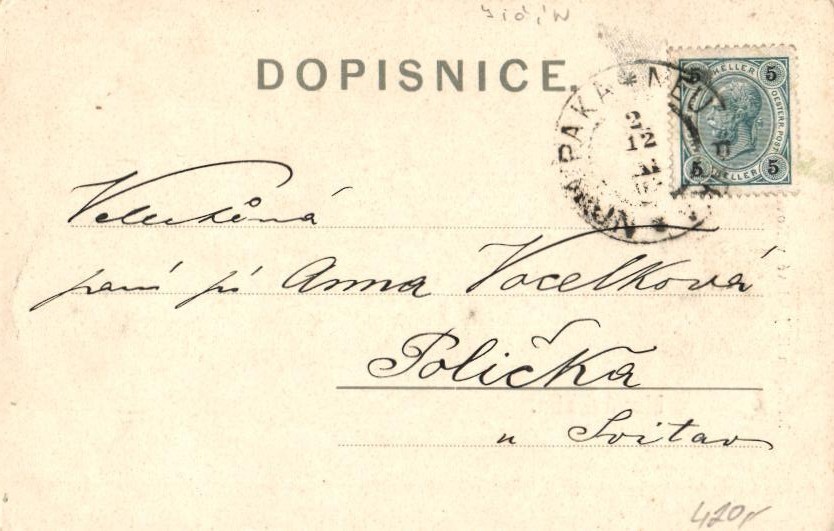 DOPISNICE.
5 HELLER 5
OESTERR. POST.
5 HELLER 5
PAKA * NEU
12
Velectěná
paní pí Anna Vocelková
Polička
u Svitav
420,-